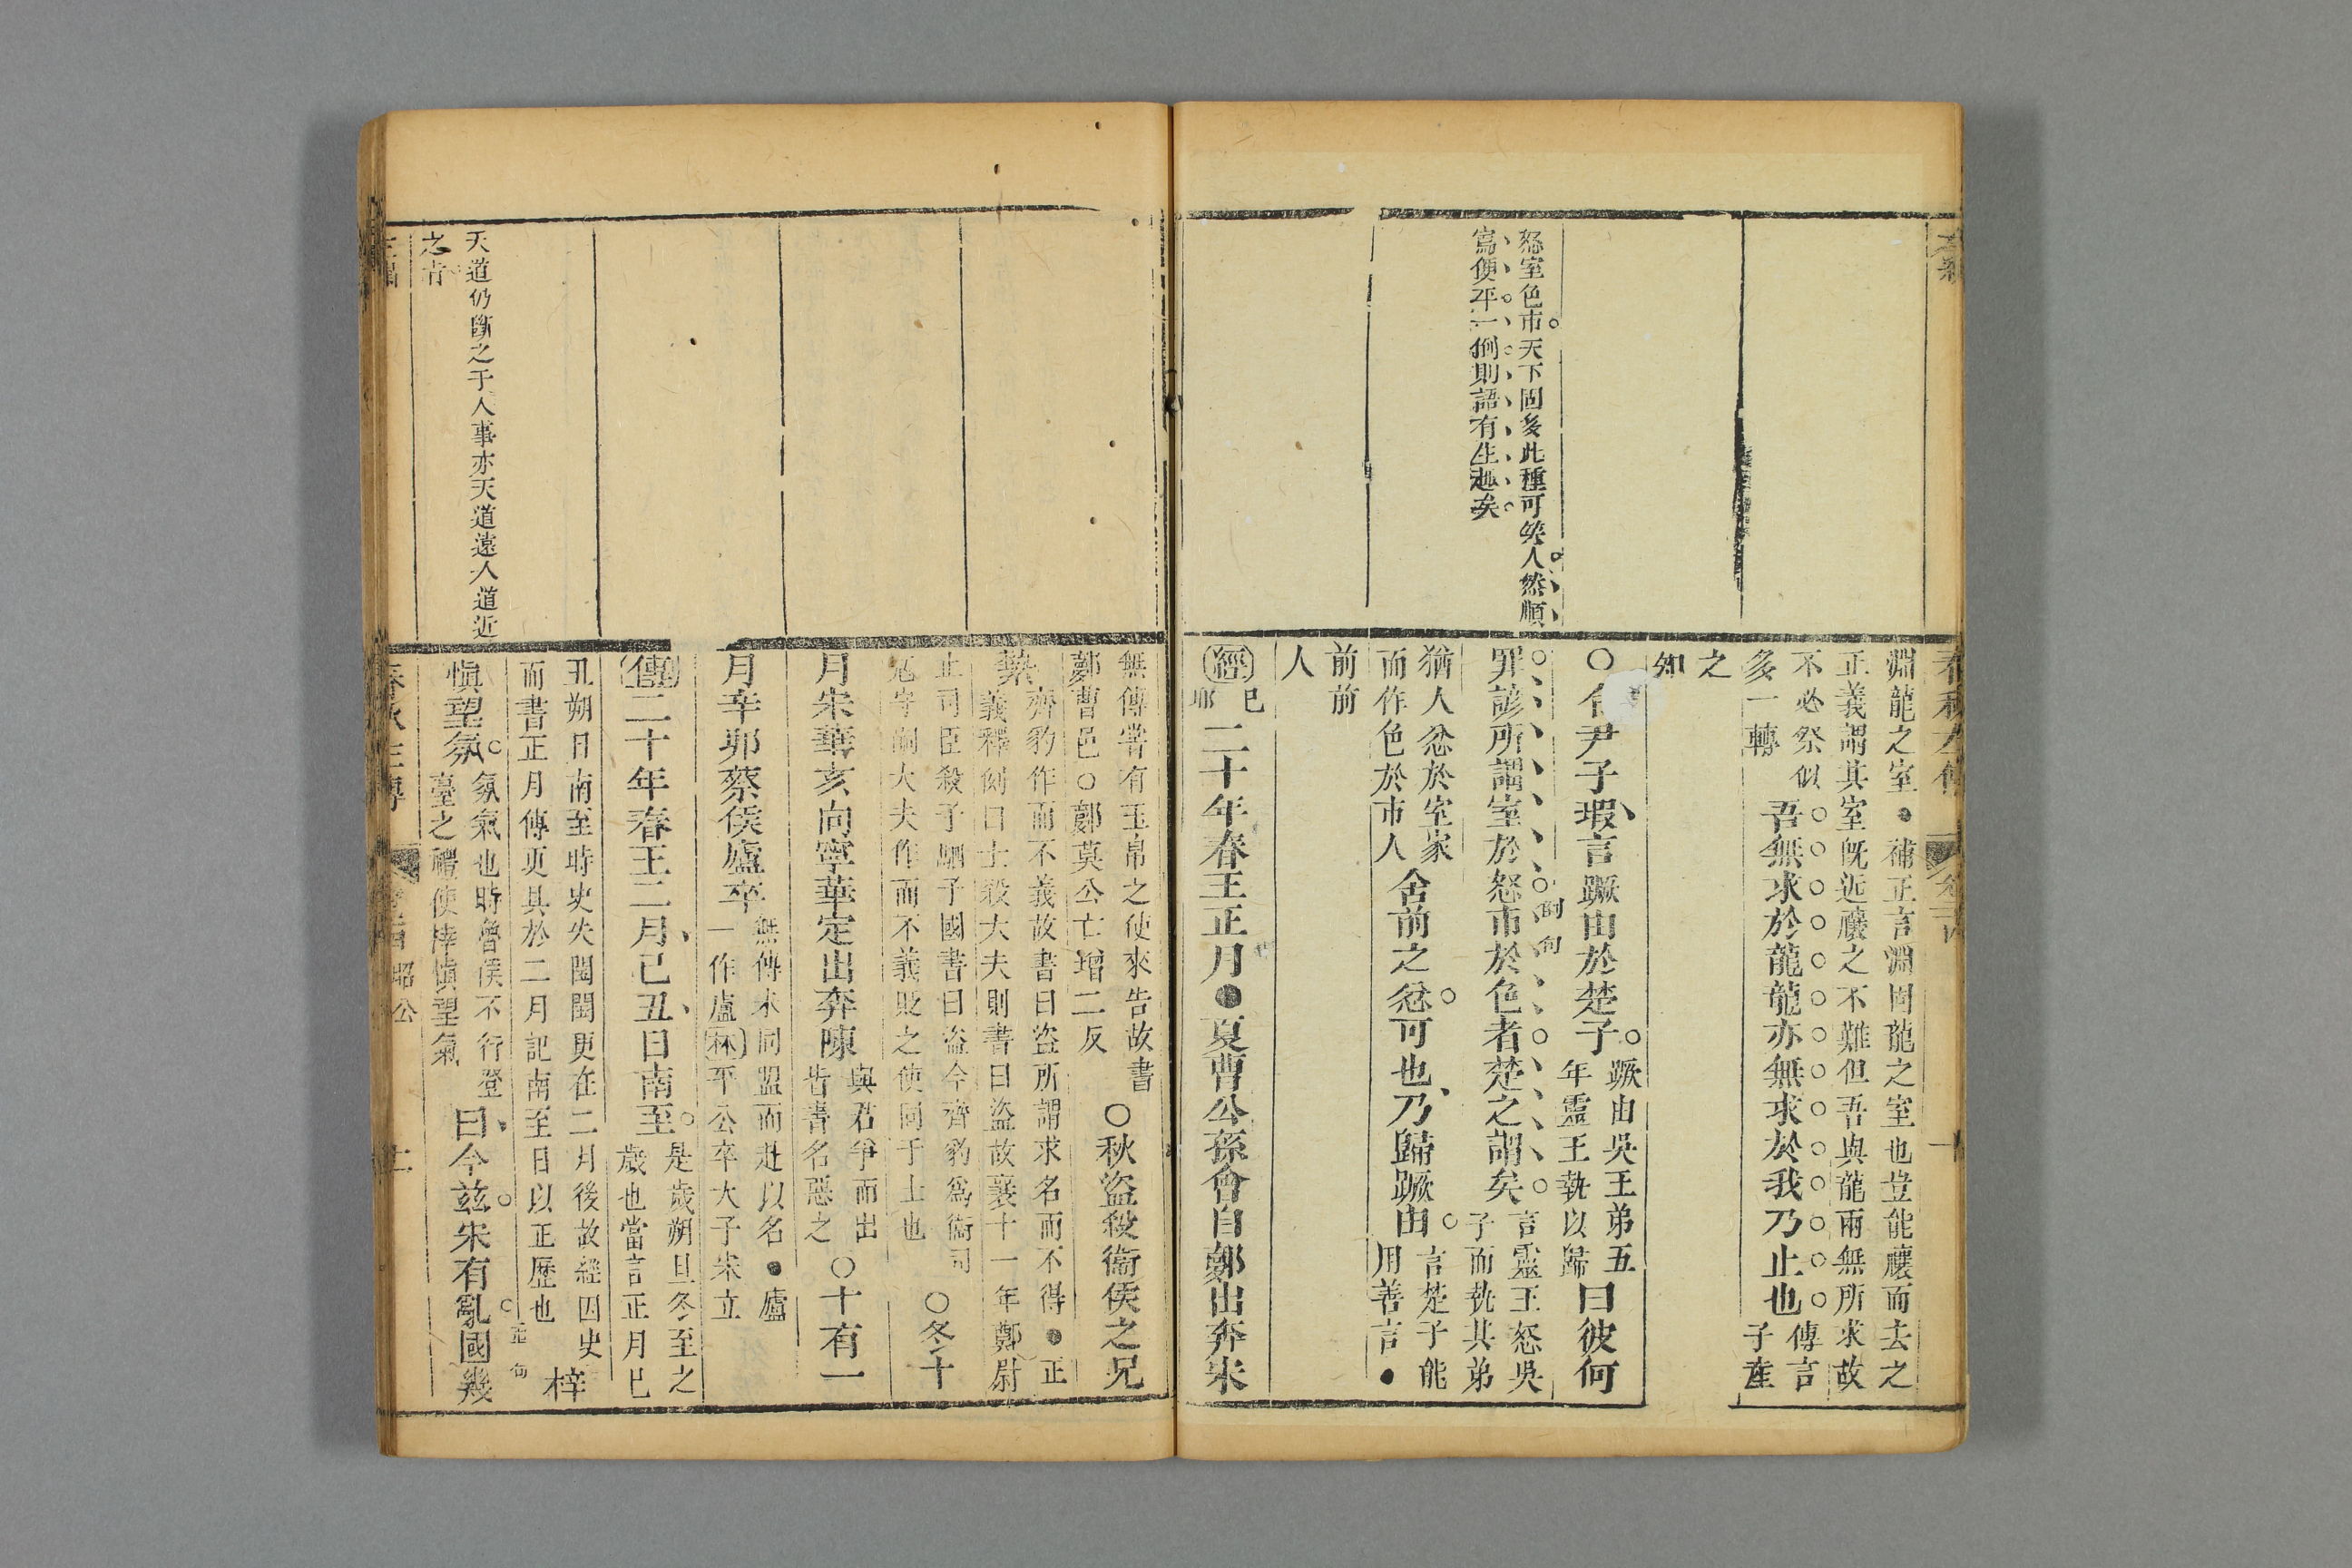 怒室色市天下固多此種可笑人然順
寫便平一倒則語有生趣矣
淵龍之室●補正言淵固龍之室也豈能禳而去之
正義謂其室旣近禳之不難但吾與龍兩無所求故
不必祭似
多一轉
吾無求於龍龍亦無求於我乃止也
傳言
子產
之
知
○令尹子瑕言蹶由於楚子
蹶由吳王弟五
年靈王執以歸
曰彼何
罪諺所謂室於怒市於色者楚之謂矣
倒句
言靈王怒吳
子而執其弟
猶人忿於室家
而作色於市人
舍前之忿可也乃歸蹶由
言楚子能
用善言●
前前
人
經
己
卯
二十年春王正月●夏曹公孫會自鄭出奔宋
無傳嘗有玉帛之使來告故書
鄭曹邑○鄭莫公亡增二反
○秋盜殺衞侯之兄
縶
齊豹作而不義故書曰盜所謂求名而不得●正
義釋例曰士殺大夫則書曰盜故襄十一年鄭尉
止司臣殺子駟子國書曰盜今齊豹爲衞司
寇守嗣大夫作而不義貶之使同于士也
○冬十
月宋華亥向寧華定出奔陳
與君爭而出
皆書名惡之
○十有一
月辛卯蔡侯廬卒
無傳未同盟而赴以名●廬
一作盧林平公卒大子朱立
傳二十年春王二月己丑日南至
是歲朔旦冬至之
歲也當言正月己
丑朔日南至時史失閏閏更在二月後故經因史
而書正月傳更具於二月記南至日以正歷也
梓
慎望氛
氛氣也時魯侯不行登
臺之禮使梓慎望氣
曰今茲宋有亂國幾
天道仍斷之于人事亦天道遠人道近
之旨
昭公